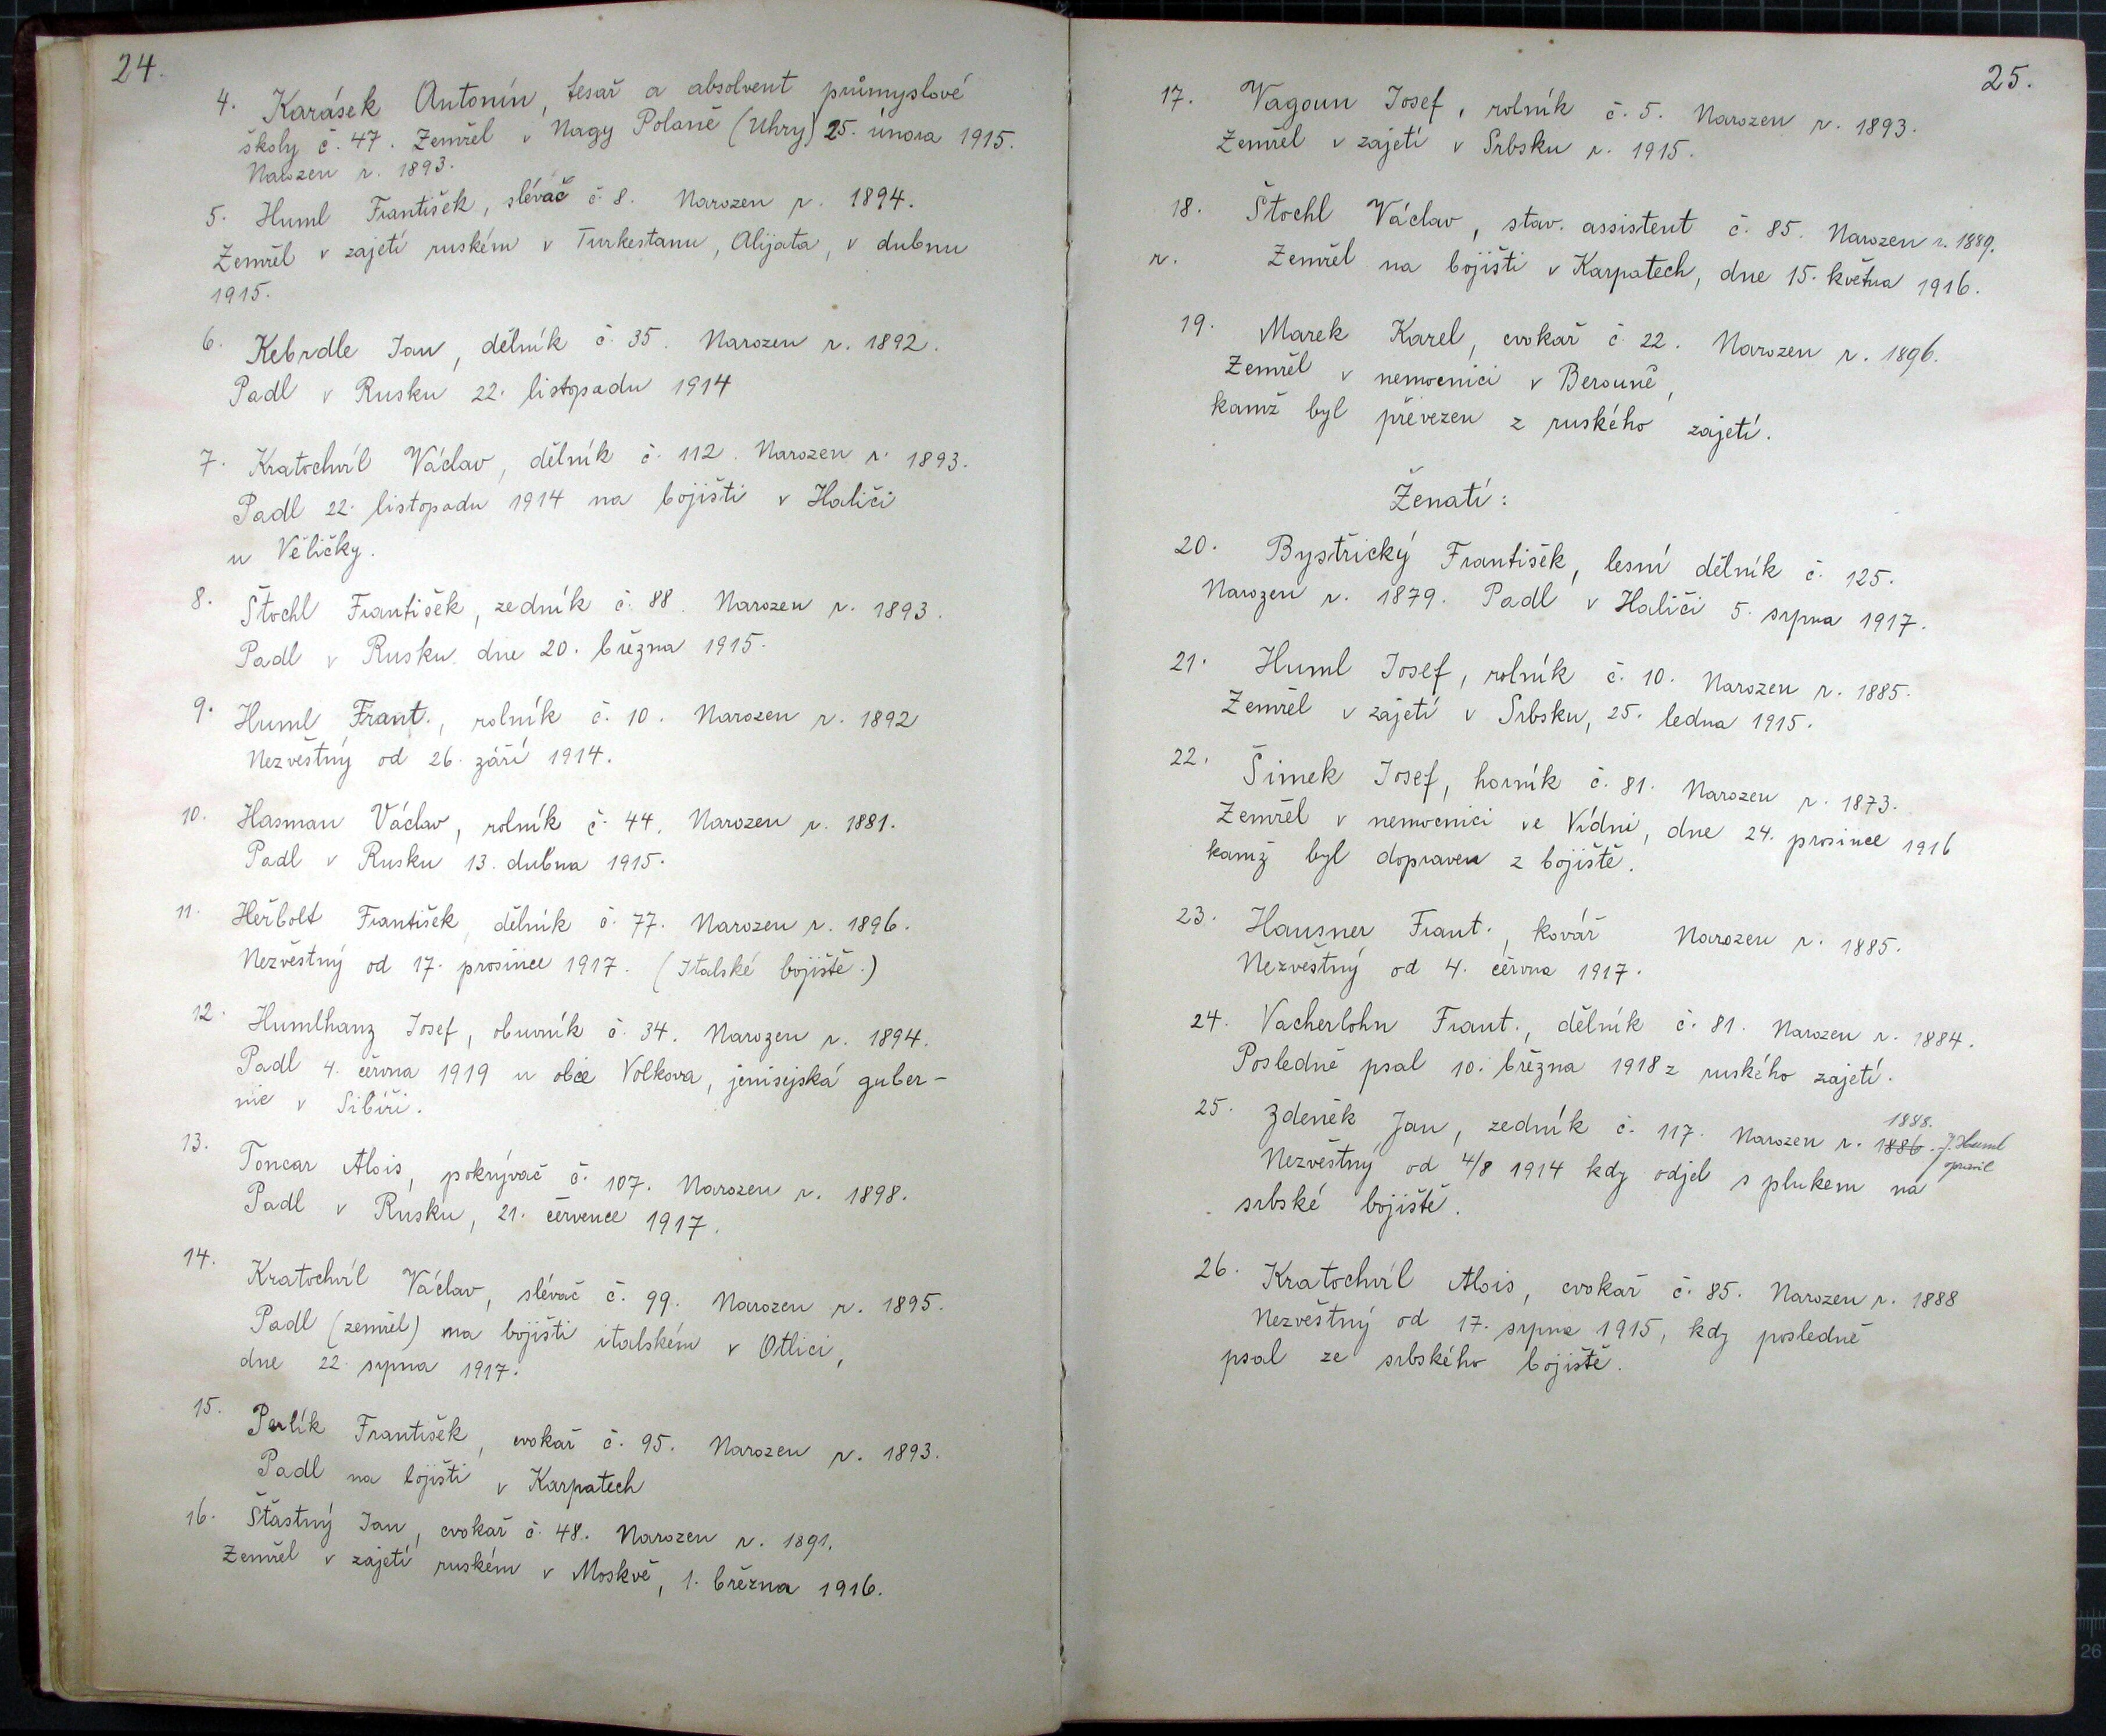 24.
4. Karásek Antonín, tesař a absolvent průmyslové
školy č. 47. Zemřel v Nagy Polaně (Uhry) 25. února 1915.
Narozen r. 1893.
5. Huml František, slévač č. 8. Narozen r. 1894.
Zemřel v zajetí ruském v Turkestanu, Alijata, v dubnu
1915.
6. Kebrdle Jan, dělník č. 35. Narozen r. 1892.
Padl v Rusku 22. listopadu 1914
7. Kratochvíl Václav, dělník č. 112. Narozen r. 1893.
Padl 22. listopadu 1914 na bojišti v Haliči
u Věličky.
8. Štochl František, zedník č. 88. Narozen r. 1893.
Padl v Rusku dne 20. března 1915.
9. Huml Frant., rolník č. 10. Narozen r. 1892
Nezvěstný od 26. září 1914.
10. Hasman Václav, rolník č. 44. Narozen r. 1881.
Padl v Rusku 13. dubna 1915.
11. Heřbolt František, dělník č. 77. Narozen r. 1896.
Nezvěstný od 17. prosince 1917. (Italské bojiště.)
12. Humlhanz Josef, obuvník č. 34. Narozen r. 1894.
Padl 4. června 1919 u obce Volkova, jenisejská guber-
nie v Sibíři.
13. Toncar Alois, pokrývač č. 107. Narozen r. 1898.
Padl v Rusku, 21. července 1917.
14. Kratochvíl Václav, slévač č. 99. Narozen r. 1895.
Padl (zemřel) na bojišti italském v Otlici,
dne 22. srpna 1917.
15. Perlík František, cvokař č. 95. Narozen r. 1893.
Padl na bojišti v Karpatech
16. Šťastný Jan, cvokař č. 48. Narozen r. 1891.
Zemřel v zajetí ruském v Moskvě, 1. března 1916.
25.
17. Vagoun Josef, rolník č. 5. Narozen r. 1893.
Zemřel v zajetí v Srbsku r. 1915.
18. Štochl Václav, stav. assistent č. 85. Narozen r. 1889.
r. Zemřel na bojišti v Karpatech, dne 15. května 1916.
19. Marek Karel, cvokař č 22. Narozen r. 1896.
Zemřel v nemocnici v Berouně,
kamž byl převezen z ruského zajetí.
Ženatí:
20. Bystřický František, lesní dělník č. 125.
Narozen r. 1879. Padl v Haliči 5. srpna 1917.
21. Huml Josef, rolník č. 10. Narozen r. 1885.
Zemřel v zajetí v Srbsku, 25. ledna 1915.
22. Šimek Josef, horník č. 81. Narozen r. 1873.
Zemřel v nemocnici ve Vídni, dne 24. prosince 1916
kamž byl dopraven z bojiště.
23. Hausner Frant., kovář Narozen r. 1885.
Nezvěstný od 4. června 1917.
24. Vacherlohn Frant., dělník č. 81. Narozen r. 1884.
Posledně psal 10. března 1918 z ruského zajetí.
1888.
25. Zdeněk Jan, zedník č. 117. Narozen r. 1886. J. Huml
opravil
Nezvěstný od 4/8 1914 kdy odjel s plukem na
srbské bojiště.
26. Kratochvíl Alois, cvokař č. 85. Narozen r. 1888
Nezvěstný od 17. srpna 1915, kdy posledně
psal ze srbského bojiště.
26